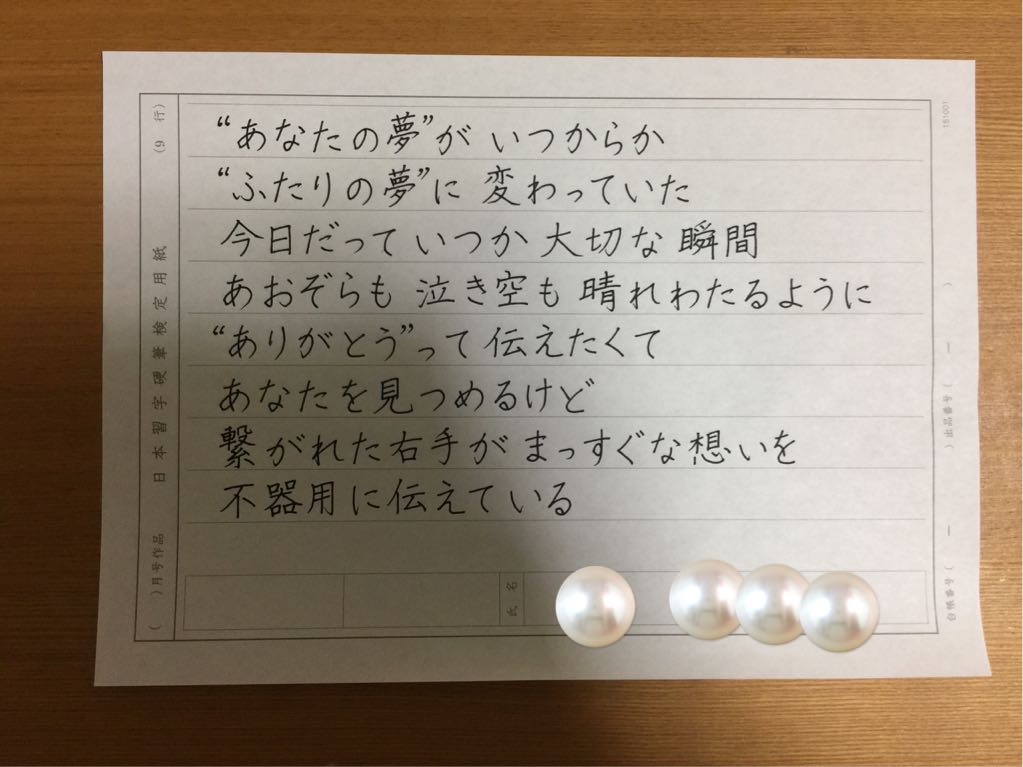 “あなたの夢”が いつからか
“ふたりの夢”に 変わっていた
今日だって いつか 大切な 瞬間
あおぞらも 泣き空も 晴れわたるように
“ありがとう”って 伝えたくて
あなたを見つめるけど
繋がれた右手が まっすぐな想いを
不器用に伝えている
氏名
( )月号作品 日本習字硬筆検定用紙 (9 行)
151001
台帳番号( ー )出品番号( ー )